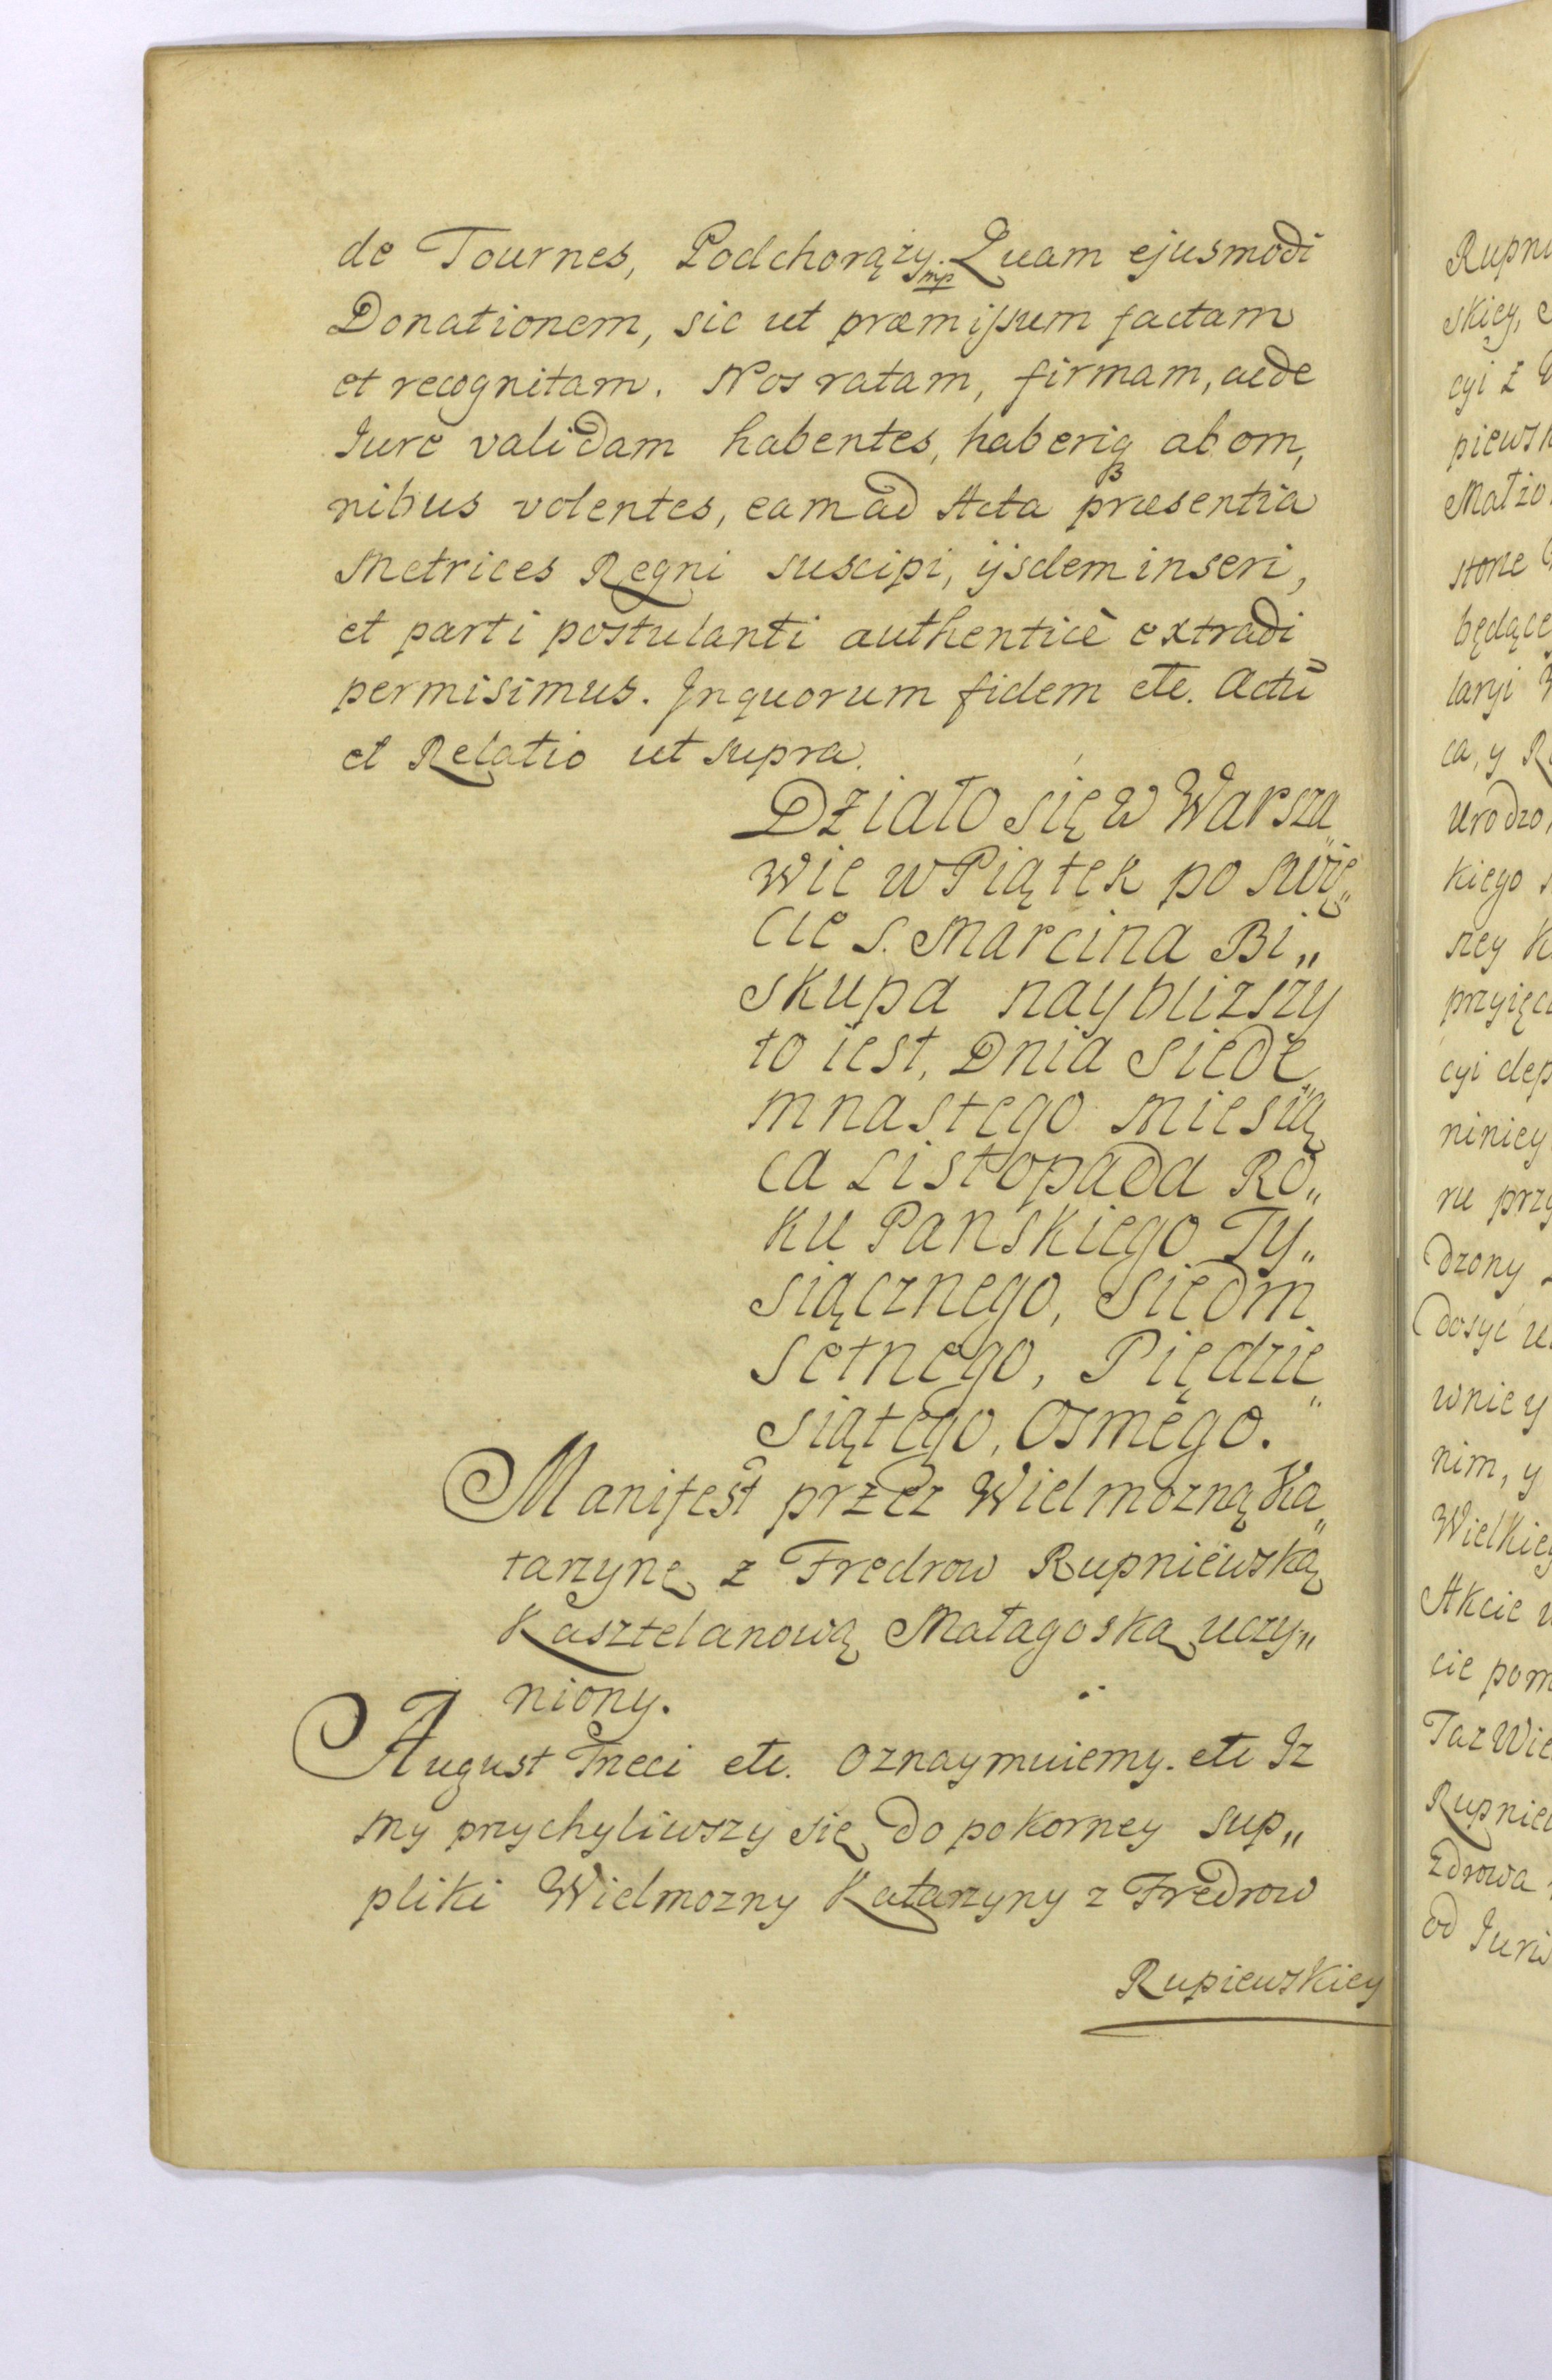 de Tournes, Podchorąży mp. Quam ejusmodi
Donationem, sic ut præmissum factam
et recognitam. Nos ratam, firmam, acde
Jure validam habentes, haberiq ab om,
nibus volentes, eam ad Acta præsentia
Metrices Regni suscipi, ijsdem inseri,
et parti postulanti authenticè extradi
permisimus. Jnquorum fidem etc. Actū
et Relatio ut supra.
Działo się w Warsza„
wie w Piątek po swię„
cie S. Marcina Bi„
skupa nayblizszy
to iest, Dnia Siede„
mnastego miesią
ca Listopada Ro„
ku Panskiego Ty„
siącznego, Siedm
setnego, Piędzie„
siątego, Osmego.
Manifest przez Wielmozną Ka„
tarzynę z Fredrow Rupniewską
Kasztelanową Małagoską uczy„
niony.
August Trzeci etc. Oznaymuiemy. etc Iz
my przychyliwszy się do pokorney sup„
pliki Wielmozny Katarzyny z Fredrow
Rupiewskiey
Rupni
skiey,
cyi z
piewsk
Małzo
stone
będące
laryi
ca, y
Urodzo
kiego
ney
przyięci
cyi dep
niniey
ru przy
dzony
dosyć
wniey
nim, y
Wielkiey
Akcie
cie pom
Taz Wie
Rupnie
zdrowa
od Juris